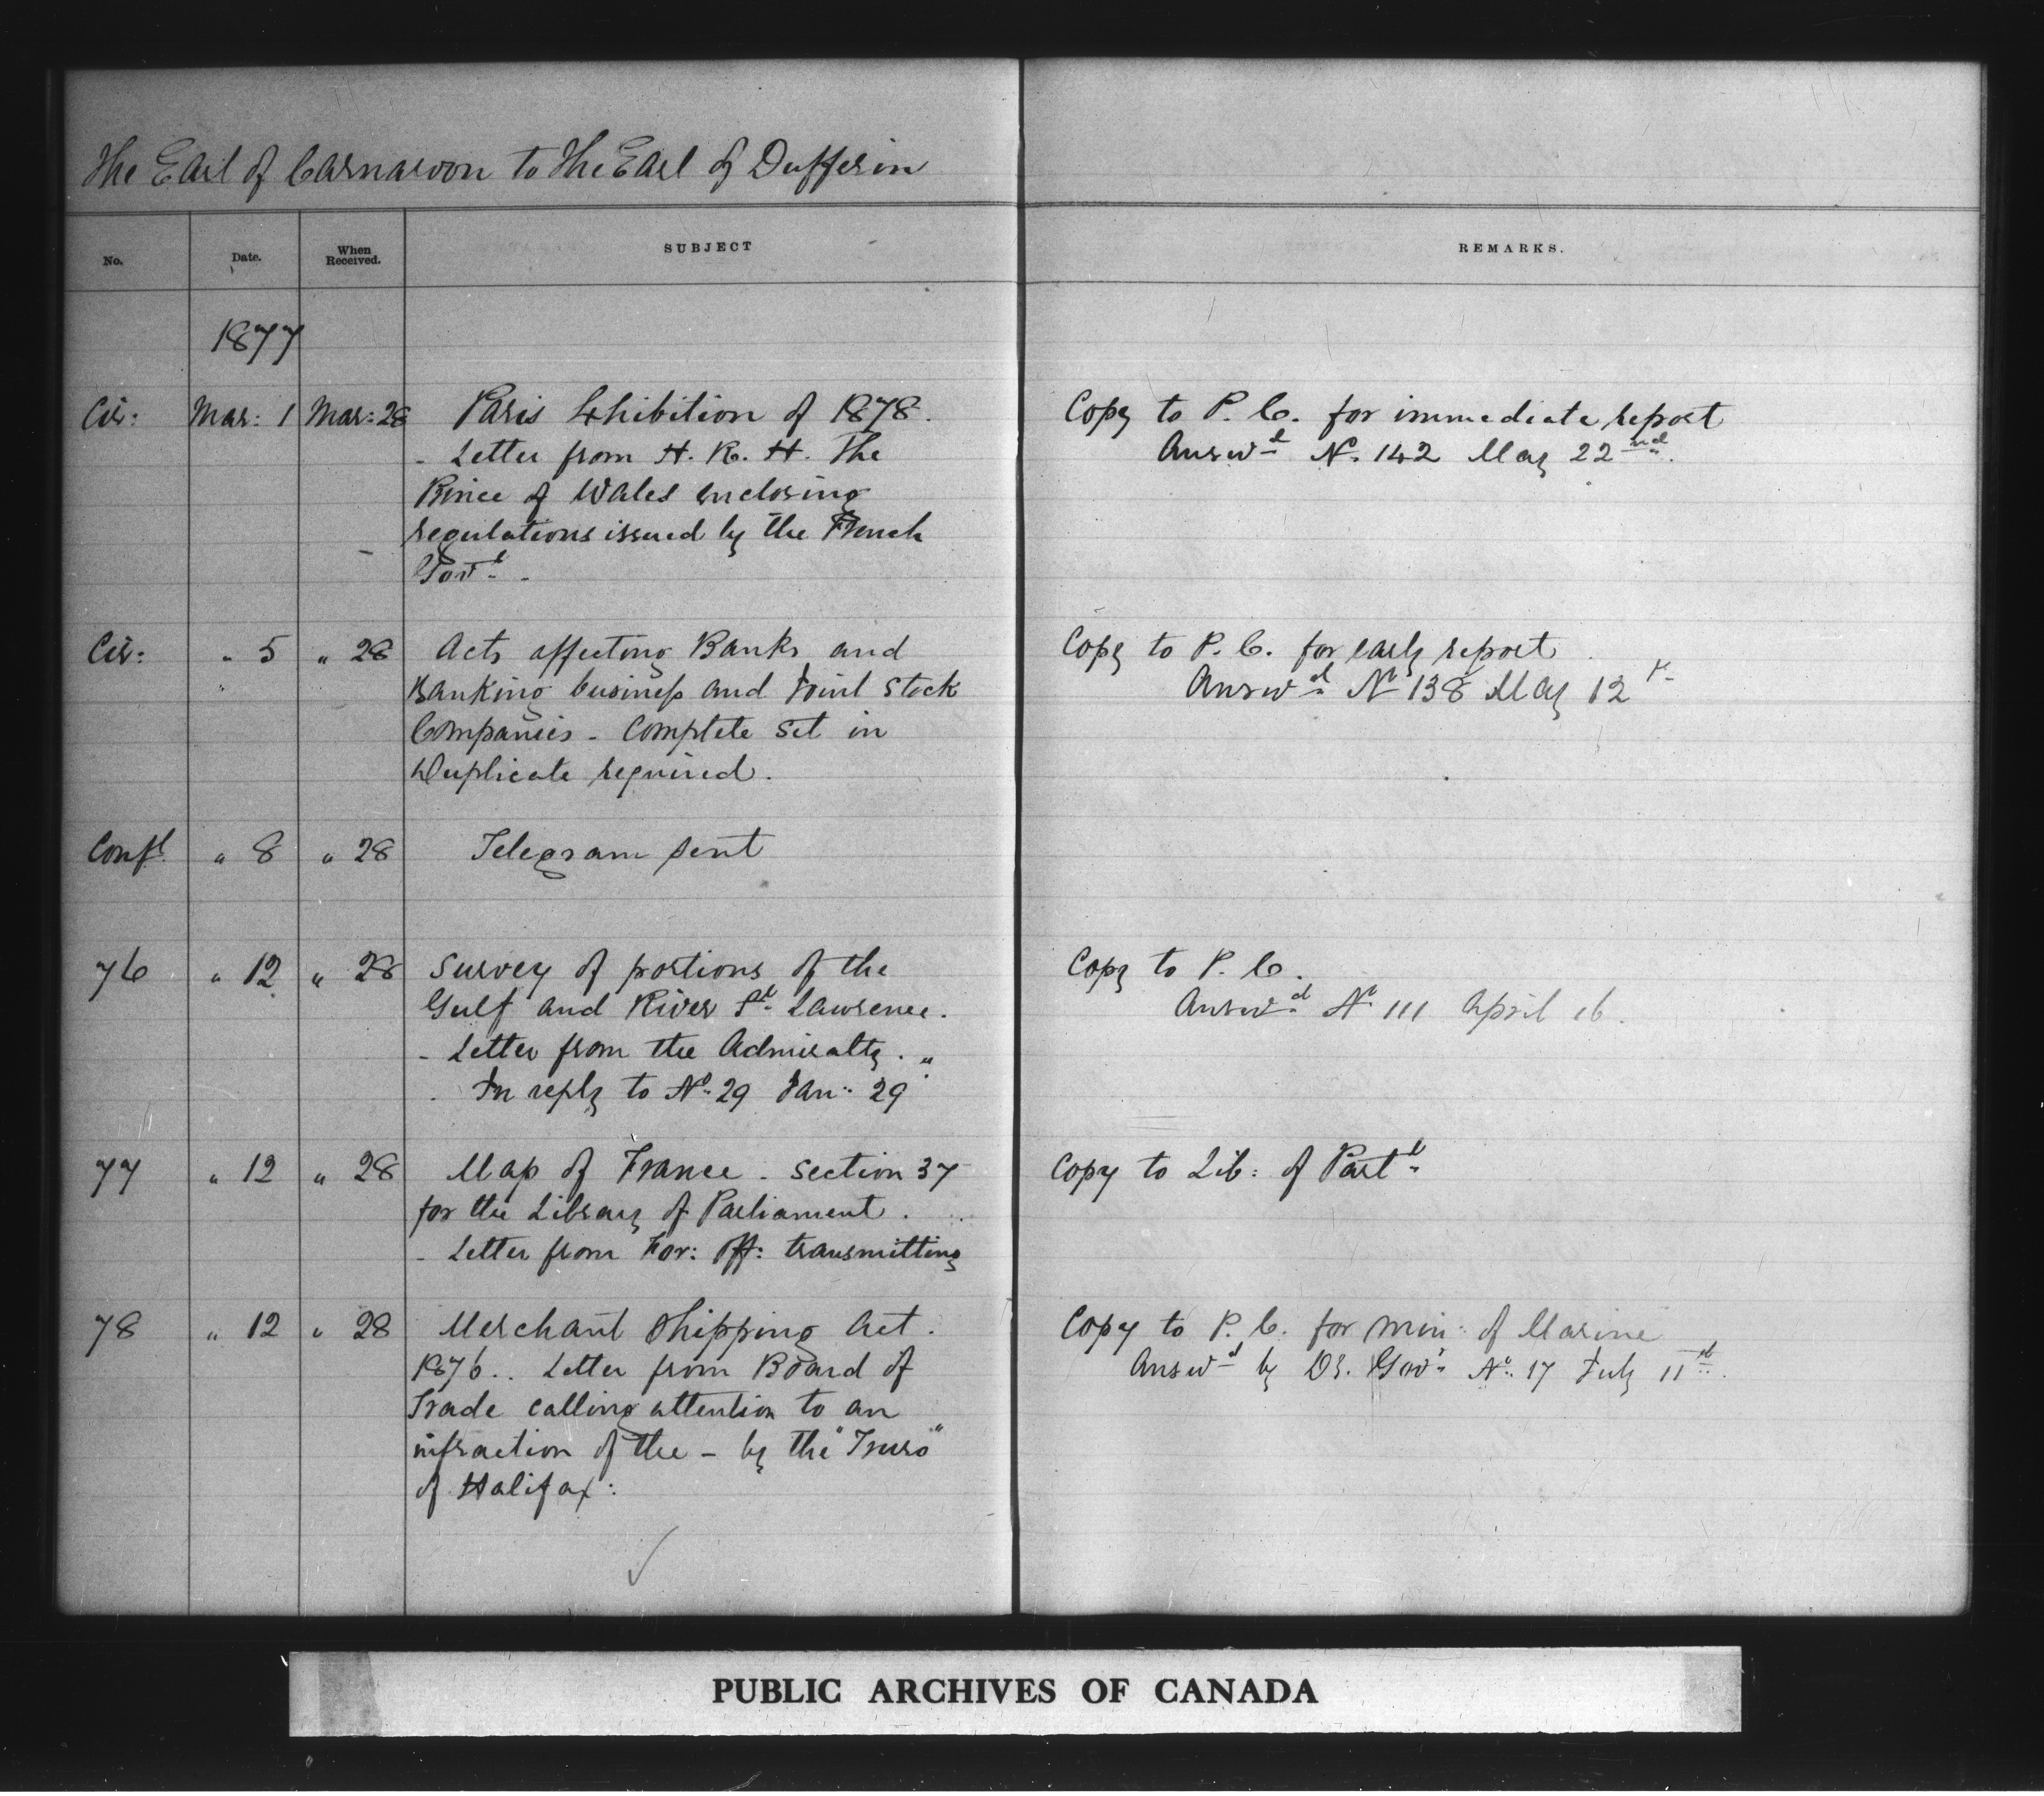 The Earl of Carnarvon to The Earl of Dufferin
No. Date. When Received. SUBJECT REMARKS.
1877
Cir: Mar: 1 Mar: 28 Paris Exhibition of 1878. Copy to P. C. for immediate report
- Letter from H. R. H. The Answd No. 142 May 22nd.
Prince of Wales enclosing
regulations issued by the French
Govt. -
Cir: " 5 " 28 Acts affecting Banks and Copy to P. C. for early report
Banking business and Joint Stock Answd No 138 May 12
Companies - Complete set in
Duplicate required.
Confl. " 8 " 28 Telegram sent
76 " 12 " 28 Survey of portions of the Copy to P. C.
Gulf and River St. Lawrence. Answd No 111 April 16.
- Letter from the Admiralty. "
. In reply to No. 29 Jan: 29
77 " 12 " 28 Map of France. Section 37 Copy to Lib: of Parlt
for the Library of Parliament.
- Letter from For: Off: transmitting
78 " 12 " 28 Merchant Shipping Act. Copy to P. C. for Min: of Marine
1876.. Letter from Board of Answd by Dy. Govr No. 17 July 11th.
Trade calling attention to an
infraction of the - by the "Truro"
of Halifax:
PUBLIC ARCHIVES OF CANADA